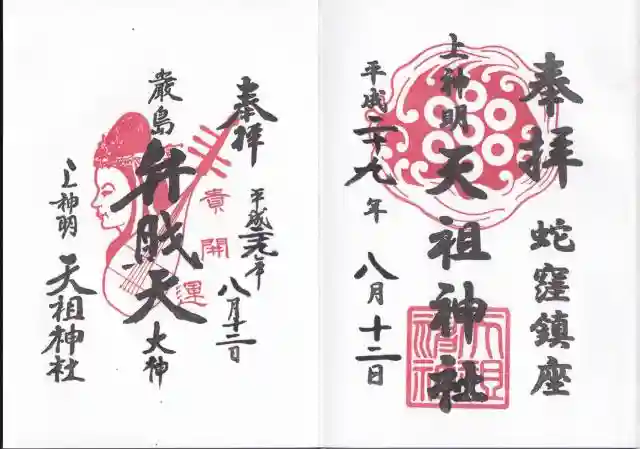 奉拝
蛇窪鎮座
上神明天祖神社
平成二十九年八月十二日
奉拝
平成二十九年八月十二日
厳島弁財天大神
上神明天祖神社
開運